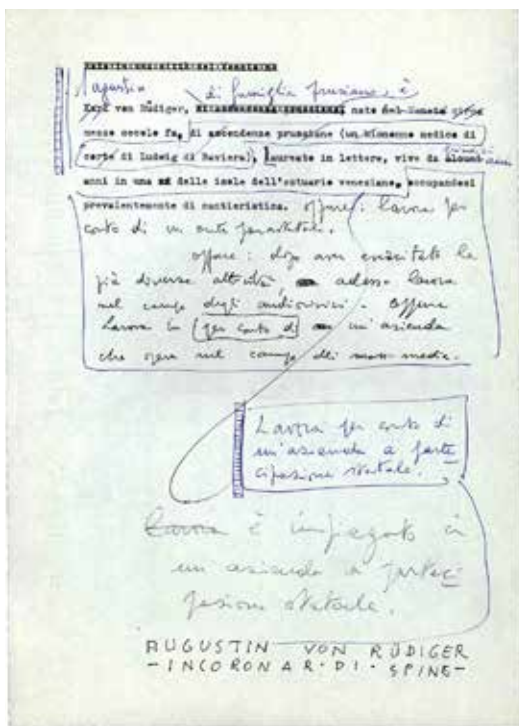 Augustin di famiglia prussiana, è
Karl von Rüdiger, nato nel Veneto circa
mezzo secolo fa, di ascendenze prussiane (un bisnonno medico di
corte di Ludwig di Baviera), laureato in lettere, vive da alcuni
anni in una delle isole dell'estuario veneziano, occupandosi
prevalentemente di cantieristica. oppure: lavora per
conto di un ente parastatale.
oppure: dopo aver esercitato le
più diverse attività, adesso lavora
nel campo degli audiovisivi. Oppure
Lavora in per conto di un'azienda
che opera nel campo dei mass-media.
Lavora per conto di
un'azienda a parte
cipazione statale.
Lavora è impiegato in
un'azienda a parteci
pazione statale.
AUGUSTIN VON RÜDIGER
-INCORONAR·DI·SPINE-